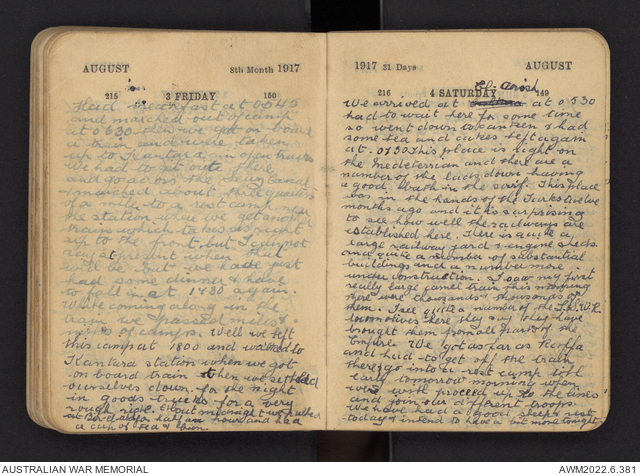 AUGUST 8th Month 1917
215 3 FRIDAY 150
Had breakfast at 0545
and marched out of camp
at 0630 then we got on board
a train and were taken
up to Kantara in open trucks
We had to get out there
and to carry the
marched about three quarters
of a mile to a rest camp near
the station where we get another
train which takes us right
up to the front but I cannot
say at present when that
will be but we have just
had some dinner & have
to fall in at 1430 again.
While coming along in the
train we passed miles &
miles of camps. Well we left
this camp at 1800 and walked to
Kantara station when we got
on board train then we settled
ourselves down for the night
in goods trucks for a very
rough ride. About midnight we pulled up
at half an hour and had
a cup of tea &
AUSTRALIAN WAR MEMORIAL
1917 31 Days AUGUST
216 4 SATURDAY 149
El-Arish
We arrived at at 0530
had to wait here for some time
so went down to canteen & had
some tea and cakes left again
at 0730 This place is right on
the Mediterrian and there are a
number of the lads down having
a good bath in the surf. This place
was in the hands of the Turks twelve
months ago and it is surprising
to see how well the railways are
established here. There is quite a
large railway yard & engine sheds
and quite a number of substantial
buildings and a number more
under construction. I saw my first
really large camel train this morning
there were thousands & thousands of
them. I see quite a number of the L.S.W.R.
locomotives here they say they have
brought them from all parts of the
Empire. We got as far as
and had to get off the train
there & go into a rest camp till
early tomorrow morning when
we will proceed up to the lines
and join our different troops.
We have had a good sleep & rest
today & intend to have a bit more tonight
AWM2022.6.381